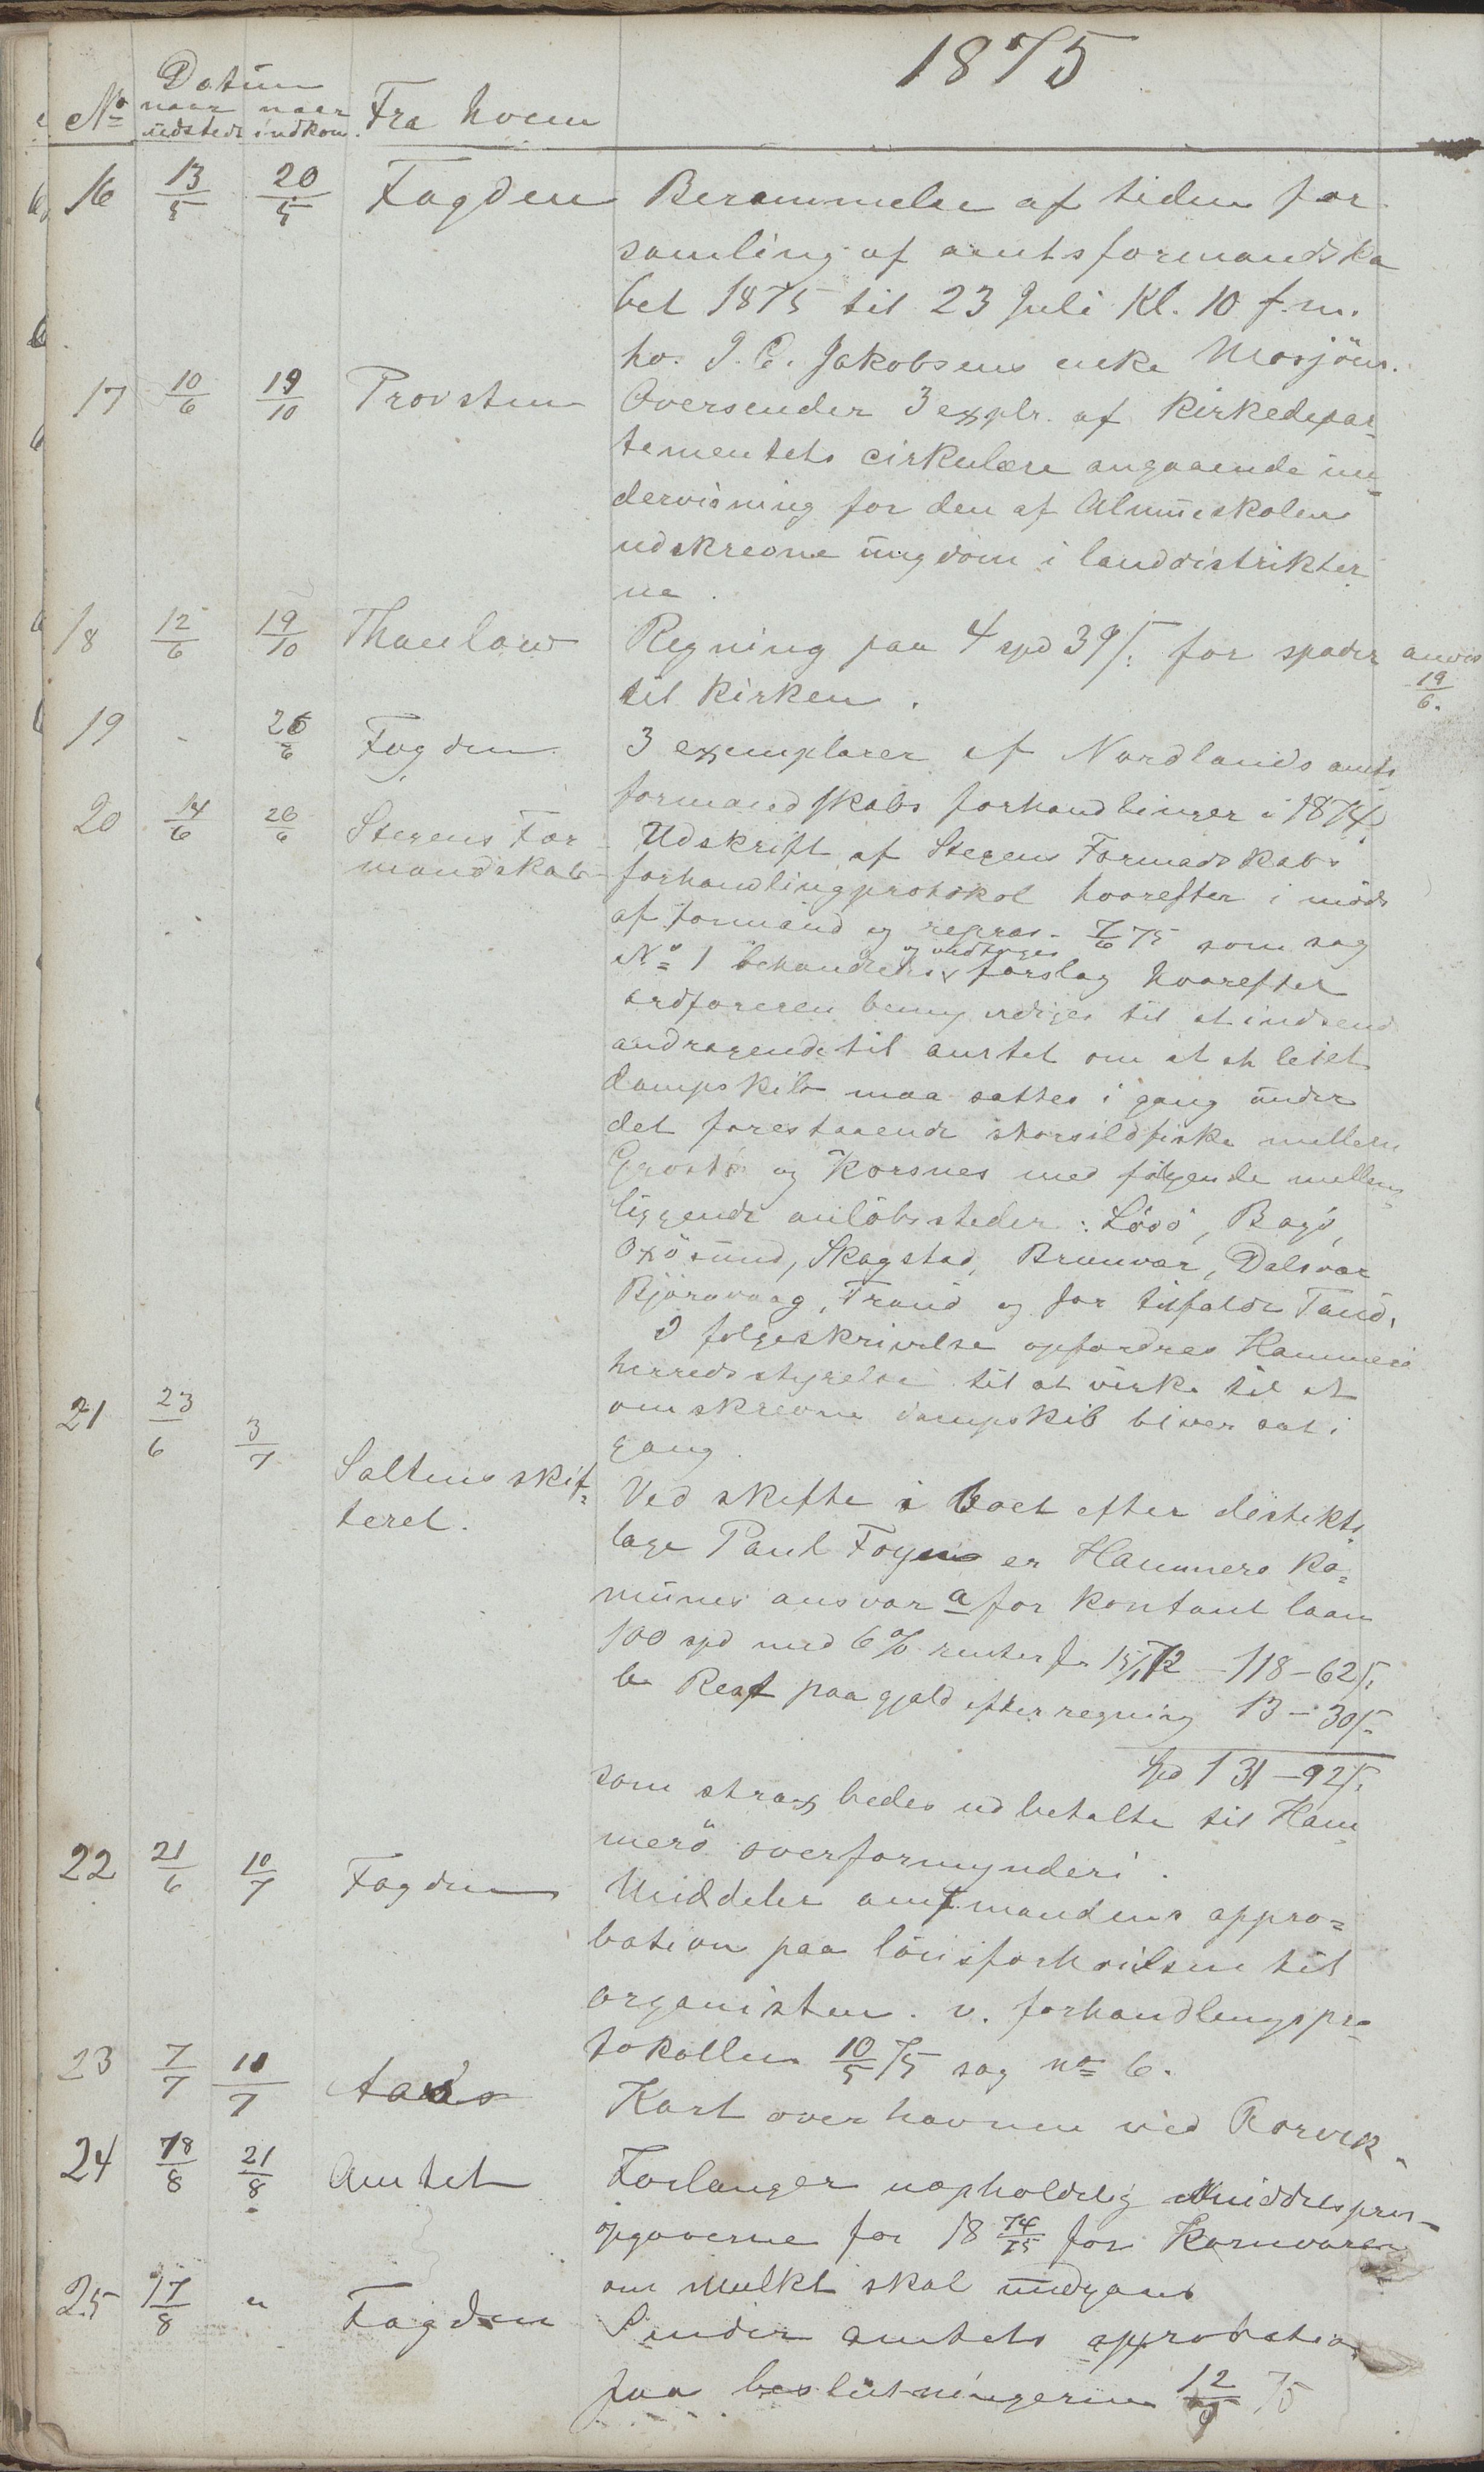 1875
Datum
No naar naar Fra hvem
udstedt indkom.
16 13/5 20/5 Fogden Berammelse af tiden for
samling af amtsformandska
bet 1875 til 23 Juli Kl. 10 f.m.
ho. J. C. Jakobsens enke Mosjöen.
17 10/6 19/10 Provsten Oversender 3 explr. af Kirkedepar=
tementets cirkulære angaaende un=
dervisning for den af Almueskolen
udskrevne ungdom i landdistrikter
ne.
18 12/6 19/10 Thaulow Regning paa 4 spd 39 /: for spader anvis
til kirken. 19/6.
19 - 26/6 Fogden 3 exemplarer af Nordlands amts
formandskabs forhandlinger i 1874.
20 14/6 26/6 Stegens For Udskrift af Stegens Formadskabs
mandskab forhandlingprotokol hvorefter i möde
af formænd og repræs. 7/6 75 som sag
og vedtoges
No 1 behandledes forslag hvorefter
ordføreren bemyndiges til at indsend
andragende til amtet om at et leiet
dampskib maa sættes i gang under
det forestaaende storsildfiske mellem
og Korsnes med følgende mellem=
liggende anlöbssteder: Lövö, Bogö,
Oxösund, Skagstad, Brunvær, Dalsvær
Bjørnvaag, Tranö og for tilfælde Tanö.
I følgeskrivelse opfordres Hammerö
herredsstyrelse til at virke til at
omskrevne dampskib bliver sat i
gang.
21 23/6 3/7 Saltens skif= Ved skifte i boet efter distikts
teret. læge Paul Foyn er Hammerö ko=
munes ansvar a for kontant laan
100 spd med 6% renter fr 15/1 72 - 118 - 62 /:
b Rest paa gjæld efter regning 13 - 30 /:
Spd 131 - 92 /:
som strax bedes udbetalte til Ham
merö overformynderi.
22 21/6 10/7 Fogden Meddeler amtmandens appro=
bation paa lönsforhøielsen til
organisten. v. forhandlingspro
tokollen 10/5 75 sag no 6.
23 7/7 10/7 Kart over havnen ved Rorvik.
24 18/8 21/8 Amtet Forlanger uopholdelig Middelspris=
opgaverne for 18 74/75 for Kornvarer
om Mulkt skal undgaaes
25 17/8 " Fogden Sender amtets approbation
paa beslutningerne 12/ 75